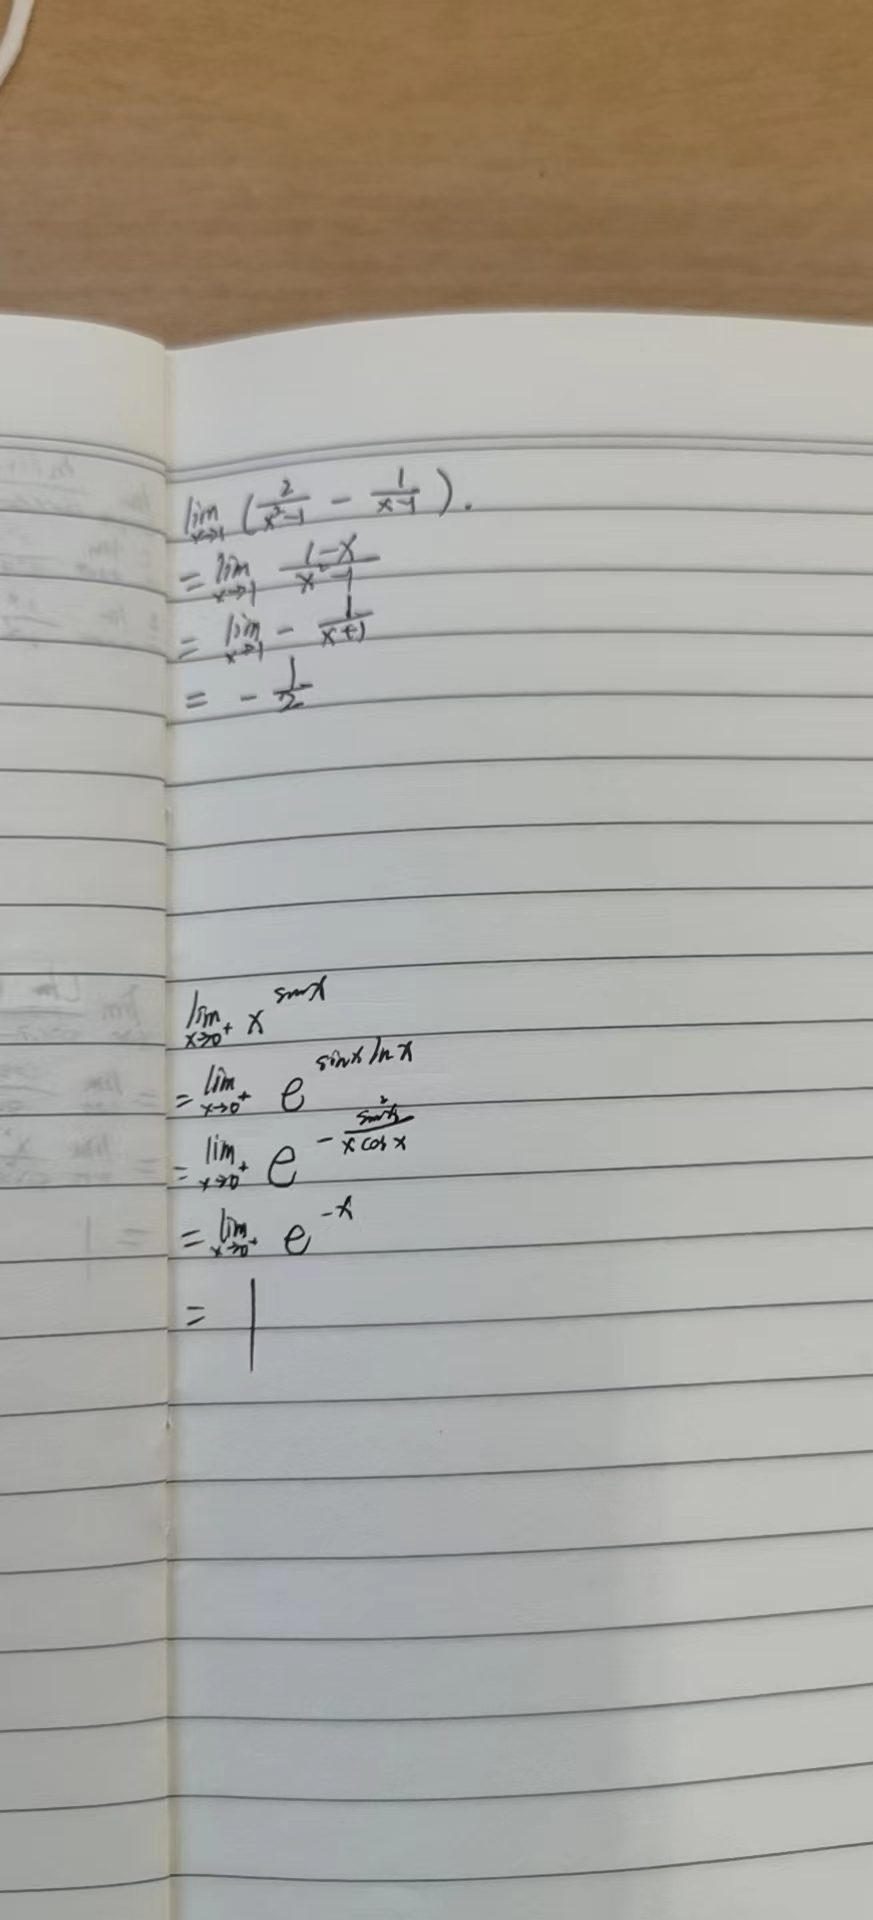 lim x→1 (2/(x²-1) - 1/(x-1)).
= lim x→1 (1-x)/(x²-1)
= lim x→1 - 1/(x+1)
= - 1/2
lim x→0⁺ x^(sinx)
= lim x→0⁺ e^(sinx lnx)
= lim x→0⁺ e^(- sin²x/(x cosx))
= lim x→0⁺ e^(-x)
= 1